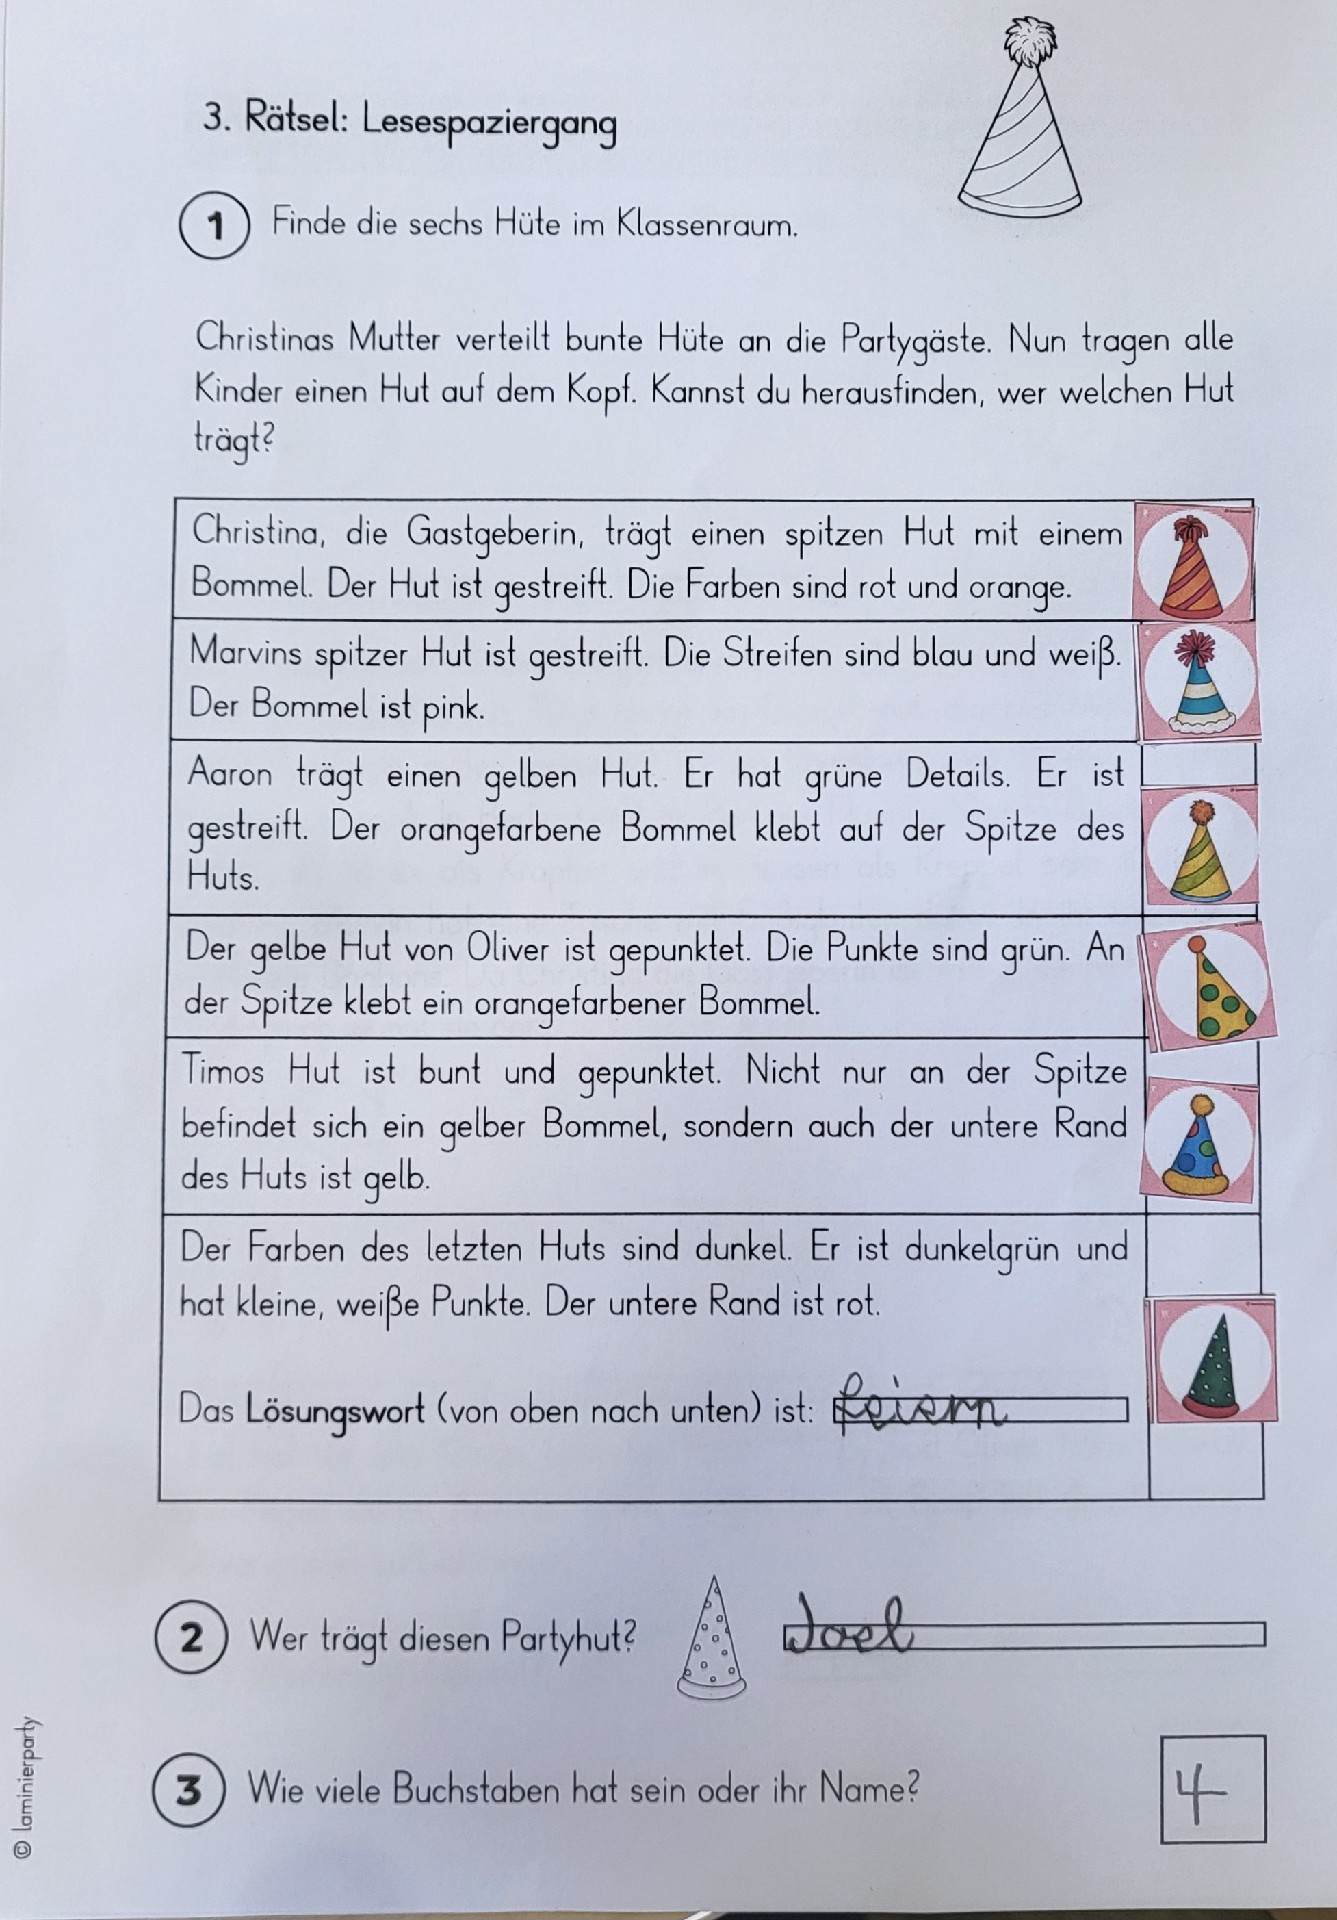 3. Rätsel: Lesespaziergang
1 Finde die sechs Hüte im Klassenraum.
Christinas Mutter verteilt bunte Hüte an die Partygäste. Nun tragen alle
Kinder einen Hut auf dem Kopf. Kannst du herausfinden, wer welchen Hut
trägt?
Christina, die Gastgeberin, trägt einen spitzen Hut mit einem
Bommel. Der Hut ist gestreift. Die Farben sind rot und orange.
Marvins spitzer Hut ist gestreift. Die Streifen sind blau und weiß.
Der Bommel ist pink.
Aaron trägt einen gelben Hut. Er hat grüne Details. Er ist
gestreift. Der orangefarbene Bommel klebt auf der Spitze des
Huts.
Der gelbe Hut von Oliver ist gepunktet. Die Punkte sind grün. An
der Spitze klebt ein orangefarbener Bommel.
Timos Hut ist bunt und gepunktet. Nicht nur an der Spitze
befindet sich ein gelber Bommel, sondern auch der untere Rand
des Huts ist gelb.
Der Farben des letzten Huts sind dunkel. Er ist dunkelgrün und
hat kleine, weiße Punkte. Der untere Rand ist rot.
Das Lösungswort (von oben nach unten) ist: feiern
2 Wer trägt diesen Partyhut? Joel
3 Wie viele Buchstaben hat sein oder ihr Name? 4
© laminierparty